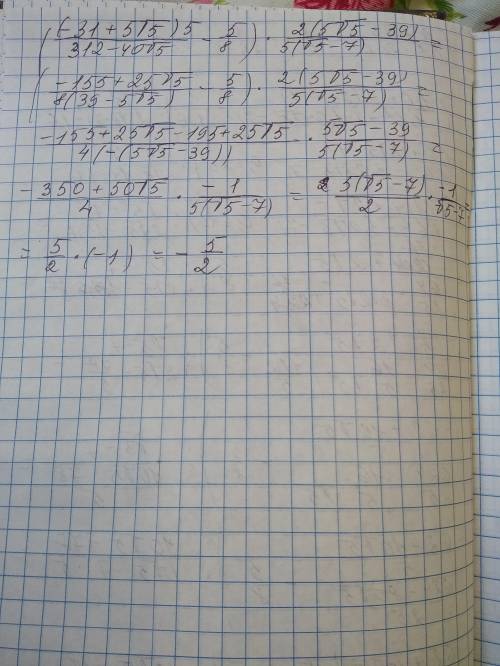 ((-31+5√5)5/(312-40√5) - 5/8) · 2(5√5-39)/(5(√5-7)) =
((-155+25√5)/(8(39-5√5)) - 5/8) · 2(5√5-39)/(5(√5-7)) =
(-155+25√5-195+25√5)/(4(-(5√5-39))) · (5√5-39)/(5(√5-7)) =
(-350+50√5)/4 · (-1)/(5(√5-7)) = 5(√5-7)/2 · (-1)/(√5-7)
= 5/2 · (-1) = -5/2